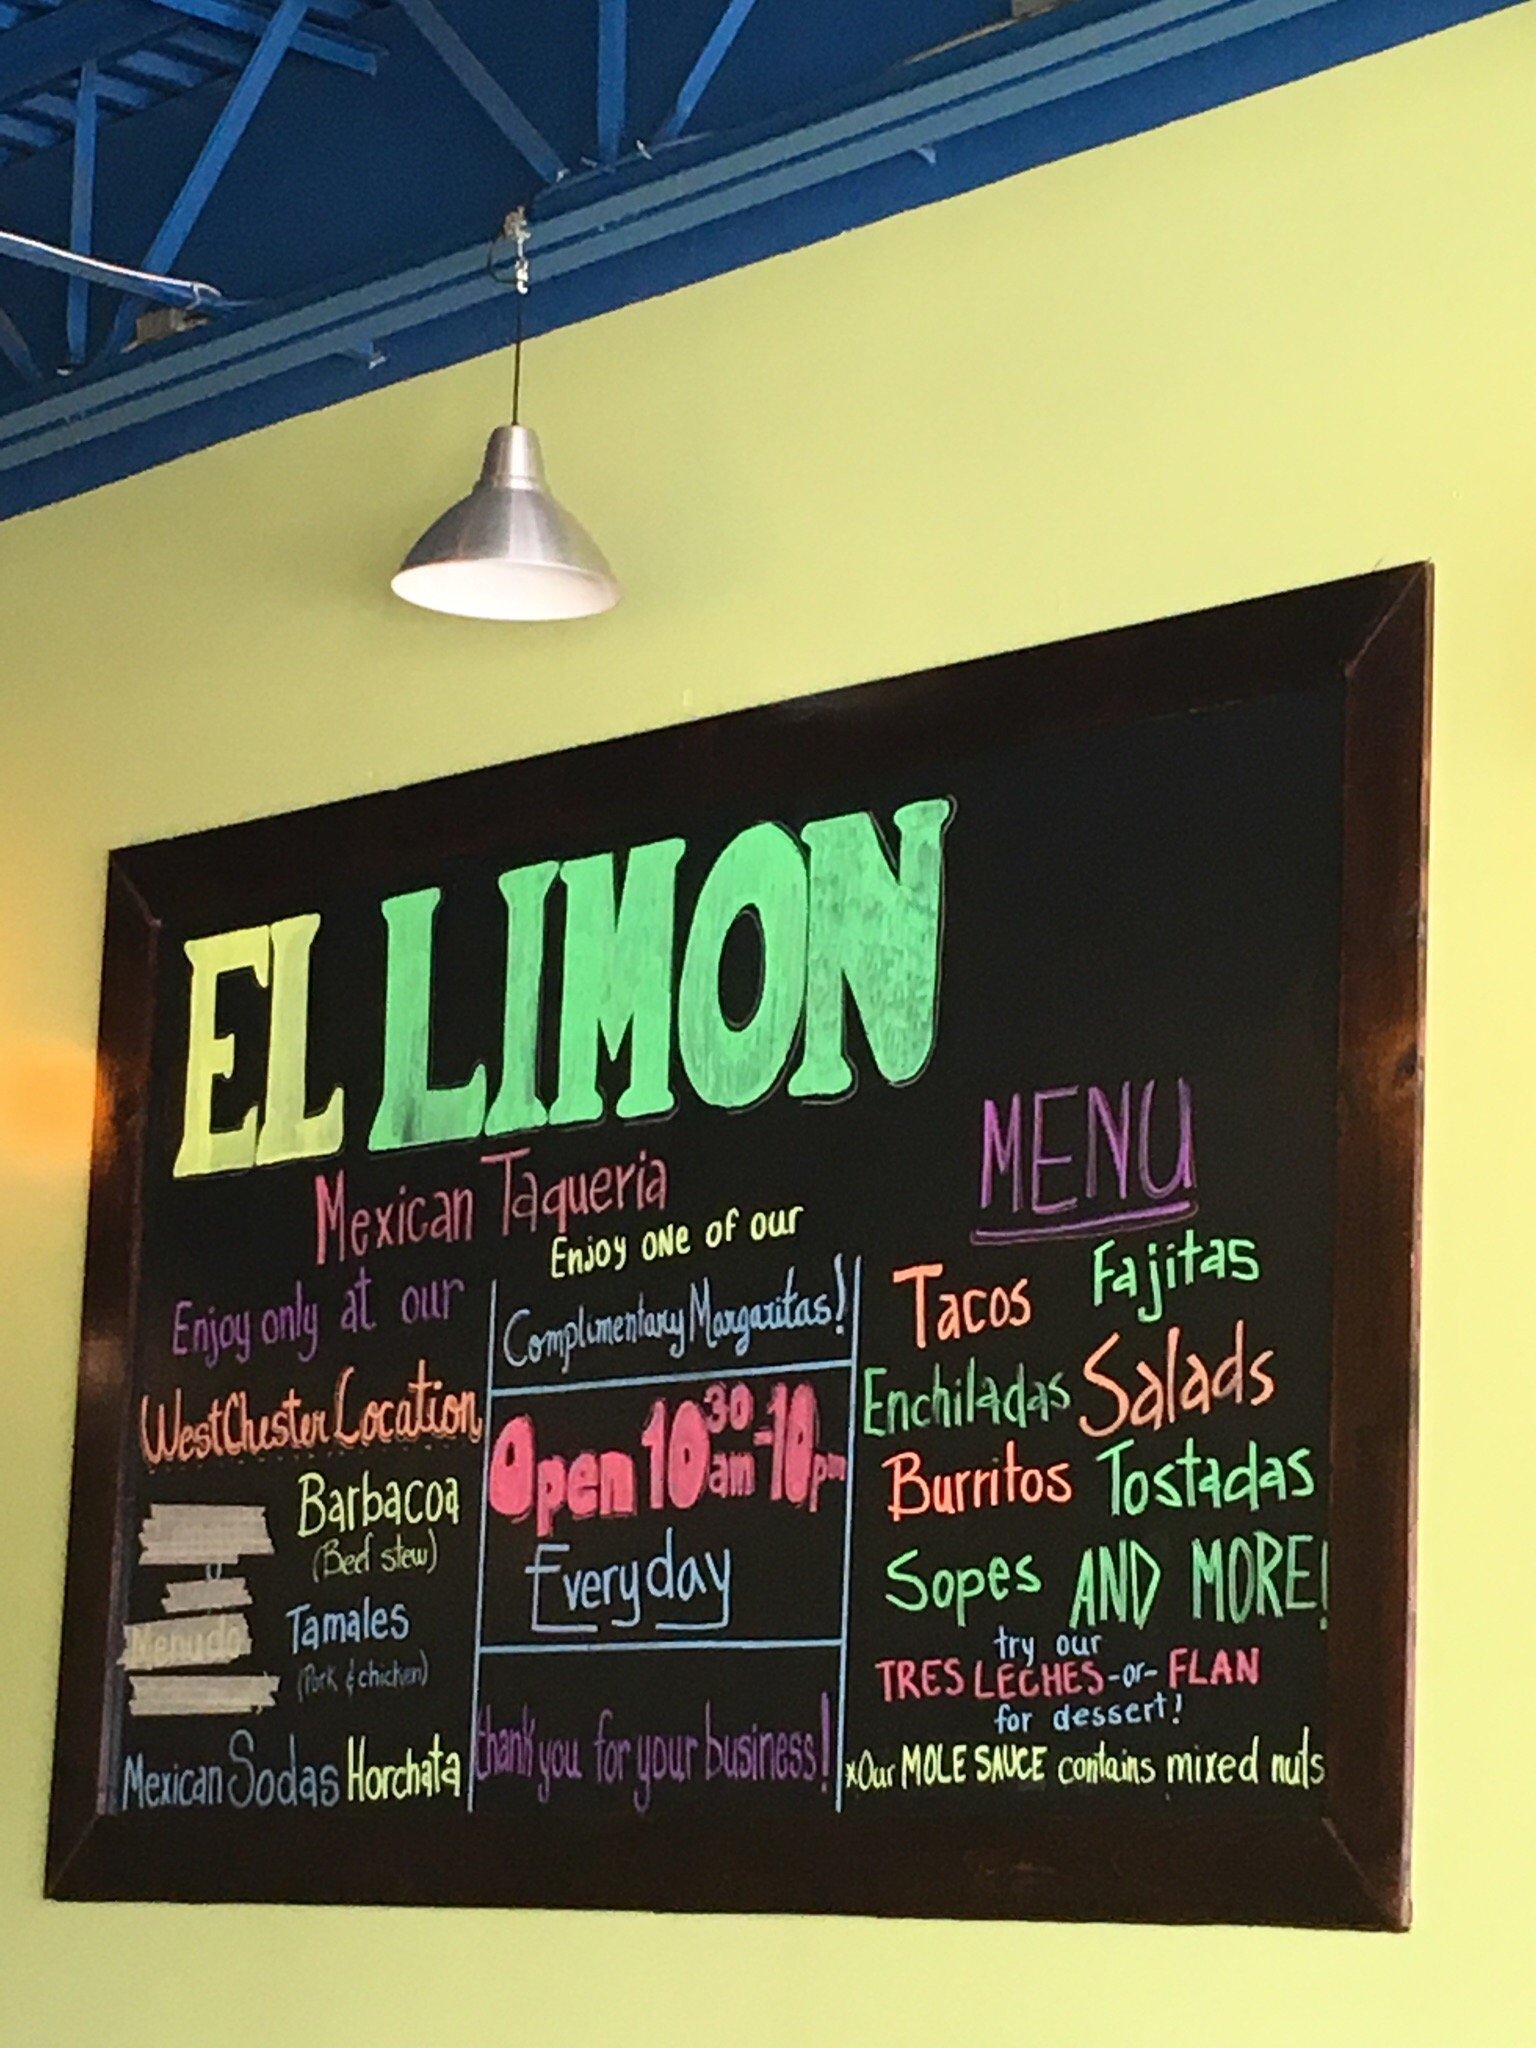 EL LIMON
Mexican Taqueria
Enjoy only at our
WestChester Location
Barbacoa
(Beef stew)
Menudo
Tamales
(Pork & chicken)
Mexican Sodas Horchata
Enjoy one of our
Complimentary Margaritas!
Open 10 30 am - 10 pm
Everyday
thank you for your business!
MENU
Tacos Fajitas
Enchiladas Salads
Burritos Tostadas
Sopes AND MORE!
try our
TRES LECHES -or- FLAN
for dessert!
*Our MOLE SAUCE contains mixed nuts